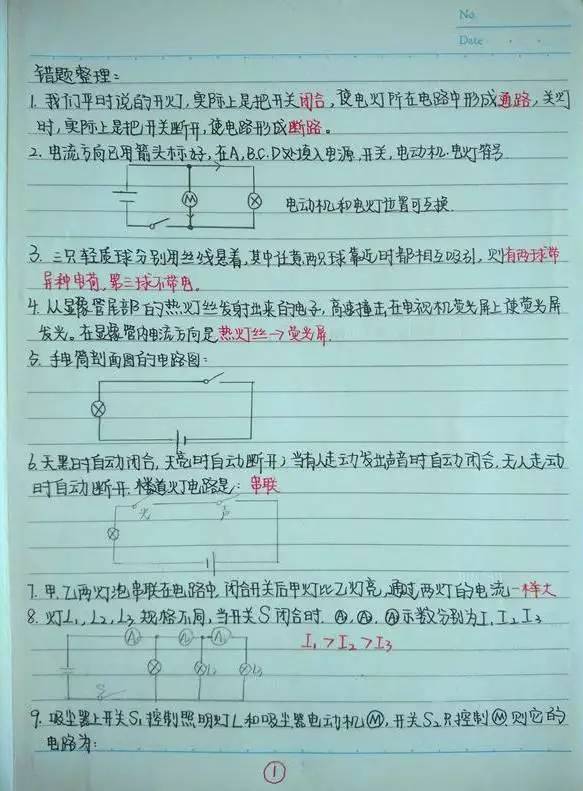 No.
Date
错题整理:
1. 我们平时说的开灯,实际上是把开关闭合,使电灯所在电路中形成通路,关灯
时,实际上是把开关断开,使电路形成断路。
2. 电流方向已用箭头标好,在A、B、C、D处填入电源、开关、电动机、电灯符号
M
电动机和电灯位置可互换.
3. 三只轻质球分别用丝线悬着,其中任意两只球靠近时都相互吸引,则有两球带
异种电荷,第三球不带电。
4. 从显像管尾部的热灯丝发射出来的电子,高速撞击在电视机荧光屏上使荧光屏
发光。在显像管内电流方向是热灯丝→荧光屏.
5. 手电筒剖面图的电路图:
6. 天黑时自动闭合,天亮时自动断开;当有人走动发出声音时自动闭合,无人走动
时自动断开.楼道灯电路是:串联
光 声
7. 甲、乙两灯泡串联在电路中,闭合开关后甲灯比乙灯亮,通过两灯的电流一样大
8. 灯L1, L2, L3 规格不同,当开关S闭合时. 示数分别为I1 I2 I3
I1 > I2 > I3
L2 L3
S
9. 吸尘器上开关S1控制照明灯L和吸尘器电动机M,开关S2只控制M.则它的
电路为:
1